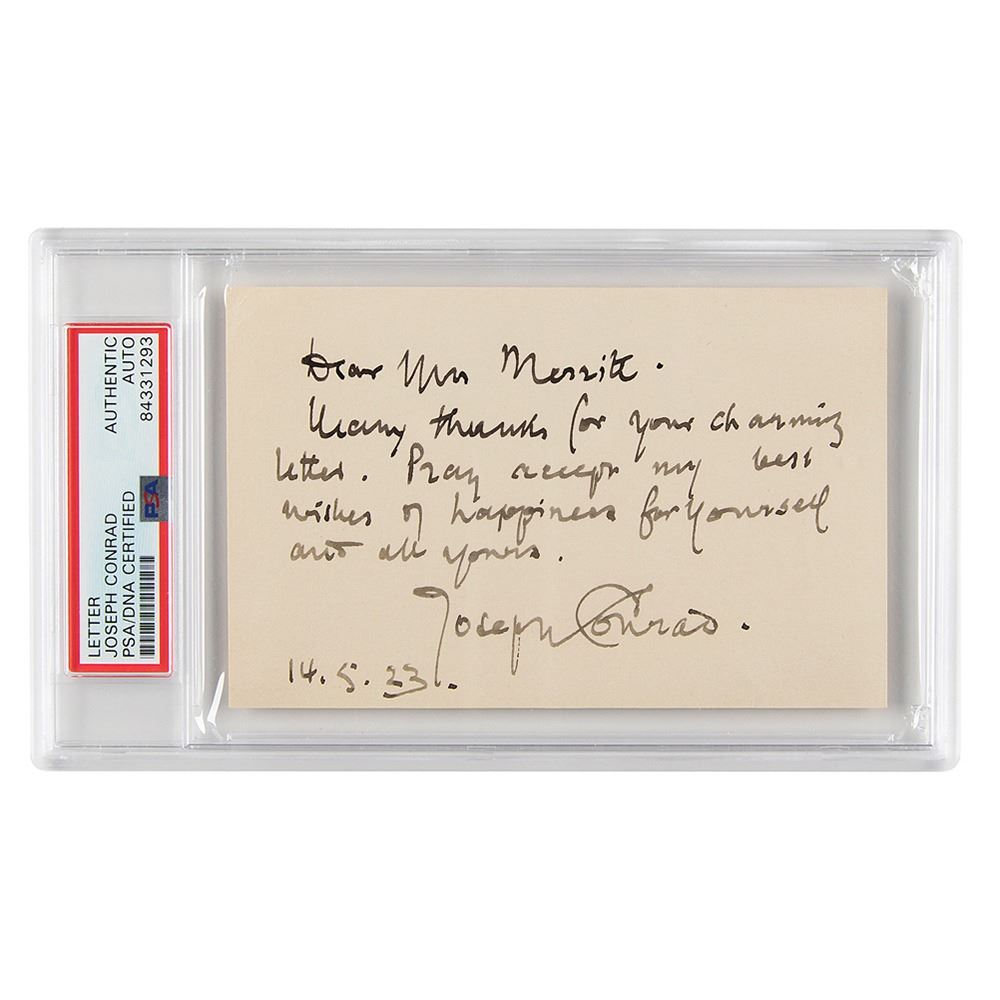 LETTER
JOSEPH CONRAD
PSA/DNA CERTIFIED
AUTHENTIC
AUTO
84331293
PSA
Dear Mrs Merritt.
Many thanks for your charming
letter. Pray accept my best
wishes of happiness for yourself
and all yours.
Joseph Conrad.
14.5.23.